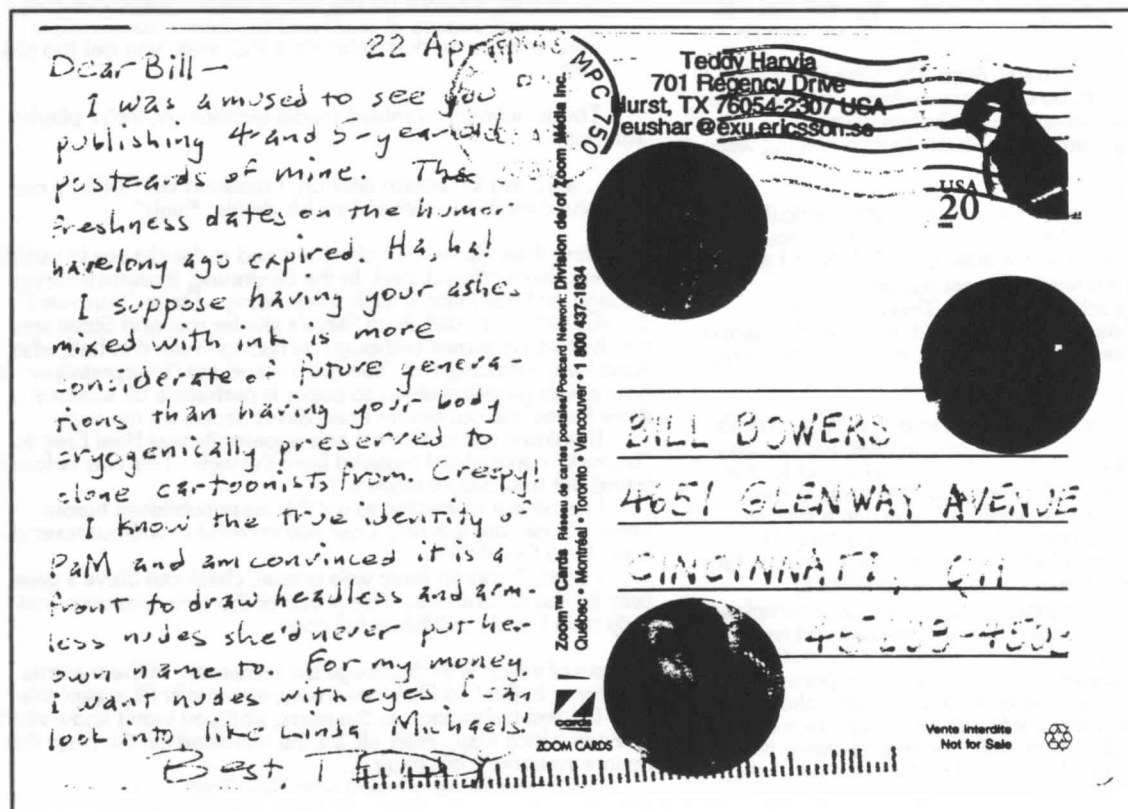 22 Apr
Dear Bill —
I was amused to see you
publishing 4- and 5-year-old
postcards of mine. The
freshness dates on the humor
have long ago expired. Ha, ha!
I suppose having your ashes
mixed with ink is more
considerate of future genera-
tions than having your body
cryogenically preserved to
clone cartoonists from. Creepy
I know the true identity
PaM and am convinced it is a
front to draw headless and arm-
less nudes she'd never put her
own name to. For my money,
I want nudes with eyes I can
look into like Linda Michaels.
Best TEDDY
Zoom™ Cards Réseau de cartes postales/Postcard Network: Division de/of Zoom Média Inc.
Québec • Montréal • Toronto • Vancouver • 1 800 437-1834
ZOOM CARDS
MPC 750
Teddy Harvia
701 Regency Drive
Hurst, TX 76054-2307 USA
eushar@exu.ericsson.se
USA
20
BILL BOWERS
4651 GLENWAY AVENUE
CINCINNATI, OH
Vente interdite
Not for Sale